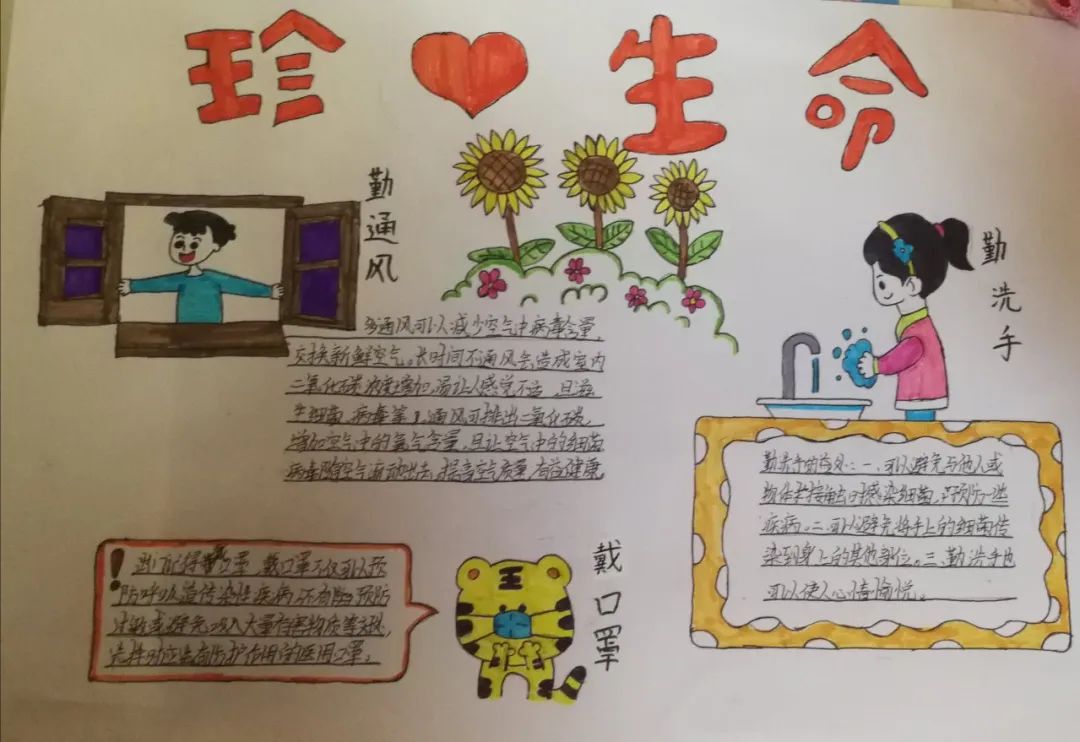 珍 生命
勤通风
多通风可以减少空气中病毒含量,
交换新鲜空气。长时间不通风会造成室内
二氧化碳浓度增加,易让人感觉不适,且滋
生细菌,病毒等,通风可排出二氧化碳,
增加空气中的氧气含量,且让空气中的细菌
病毒随空气流动出去,提高空气质量,有益健康
勤洗手
勤洗手的益处:一、可以避免与他人或
物体接触时感染细菌,预防一些
疾病。二、可以避免将手上的细菌传
染到身上的其他部位。三、勤洗手也
可以使人心情愉悦。
戴口罩
王
记得戴口罩,戴口罩不仅可以预
防呼吸道传染性疾病,还有助预防
过敏或避免吸入大量有害物质等
选择 防护作用的医用口罩。